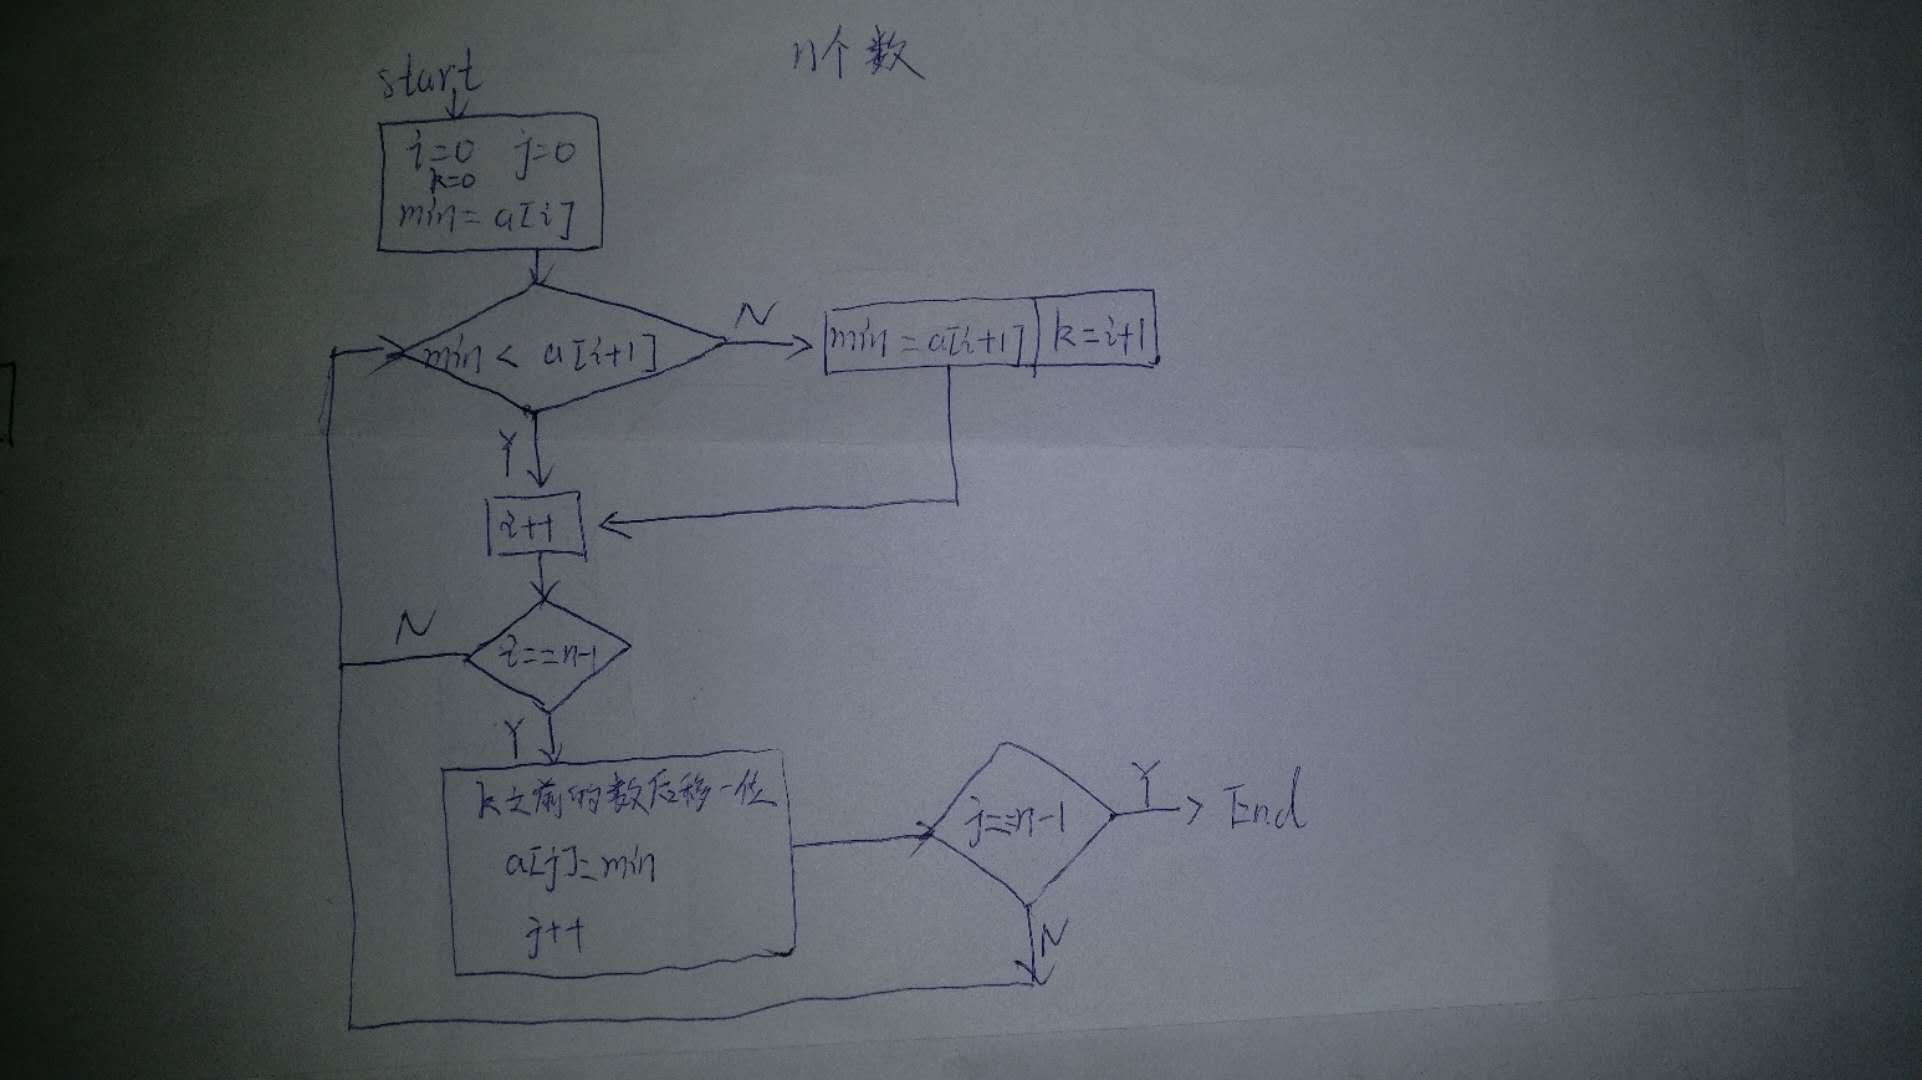 n个数
start
i=0 j=0
k=0
min=a[i]
N
min < a[i+1]
min=a[i+1] k=i+1
Y
i++
N
i==n-1
Y
k之前的数后移一位
a[j]=min
j++
j==n-1
Y
End
N